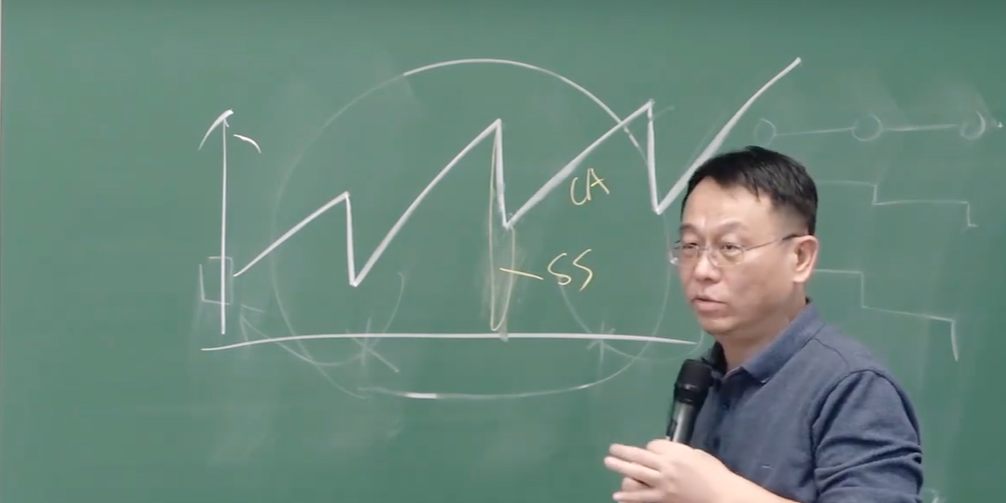 CA
SS